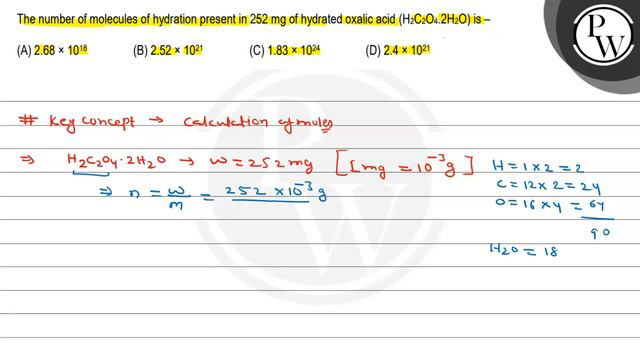 The number of molecules of hydration present in 252 mg of hydrated oxalic acid (H₂C₂O₄.2H₂O) is –
(A) 2.68 × 10¹⁸ (B) 2.52 × 10²¹ (C) 1.83 × 10²⁴ (D) 2.4 × 10²¹
PW
# Key concept → calculation of moles
⇒ H₂C₂O₄·2H₂O → W = 252 mg [1 mg = 10⁻³ g]
⇒ n = w/m = 252 × 10⁻³ g
H = 1 × 2 = 2
C = 12 × 2 = 24
O = 16 × 4 = 64
90
H₂O = 18